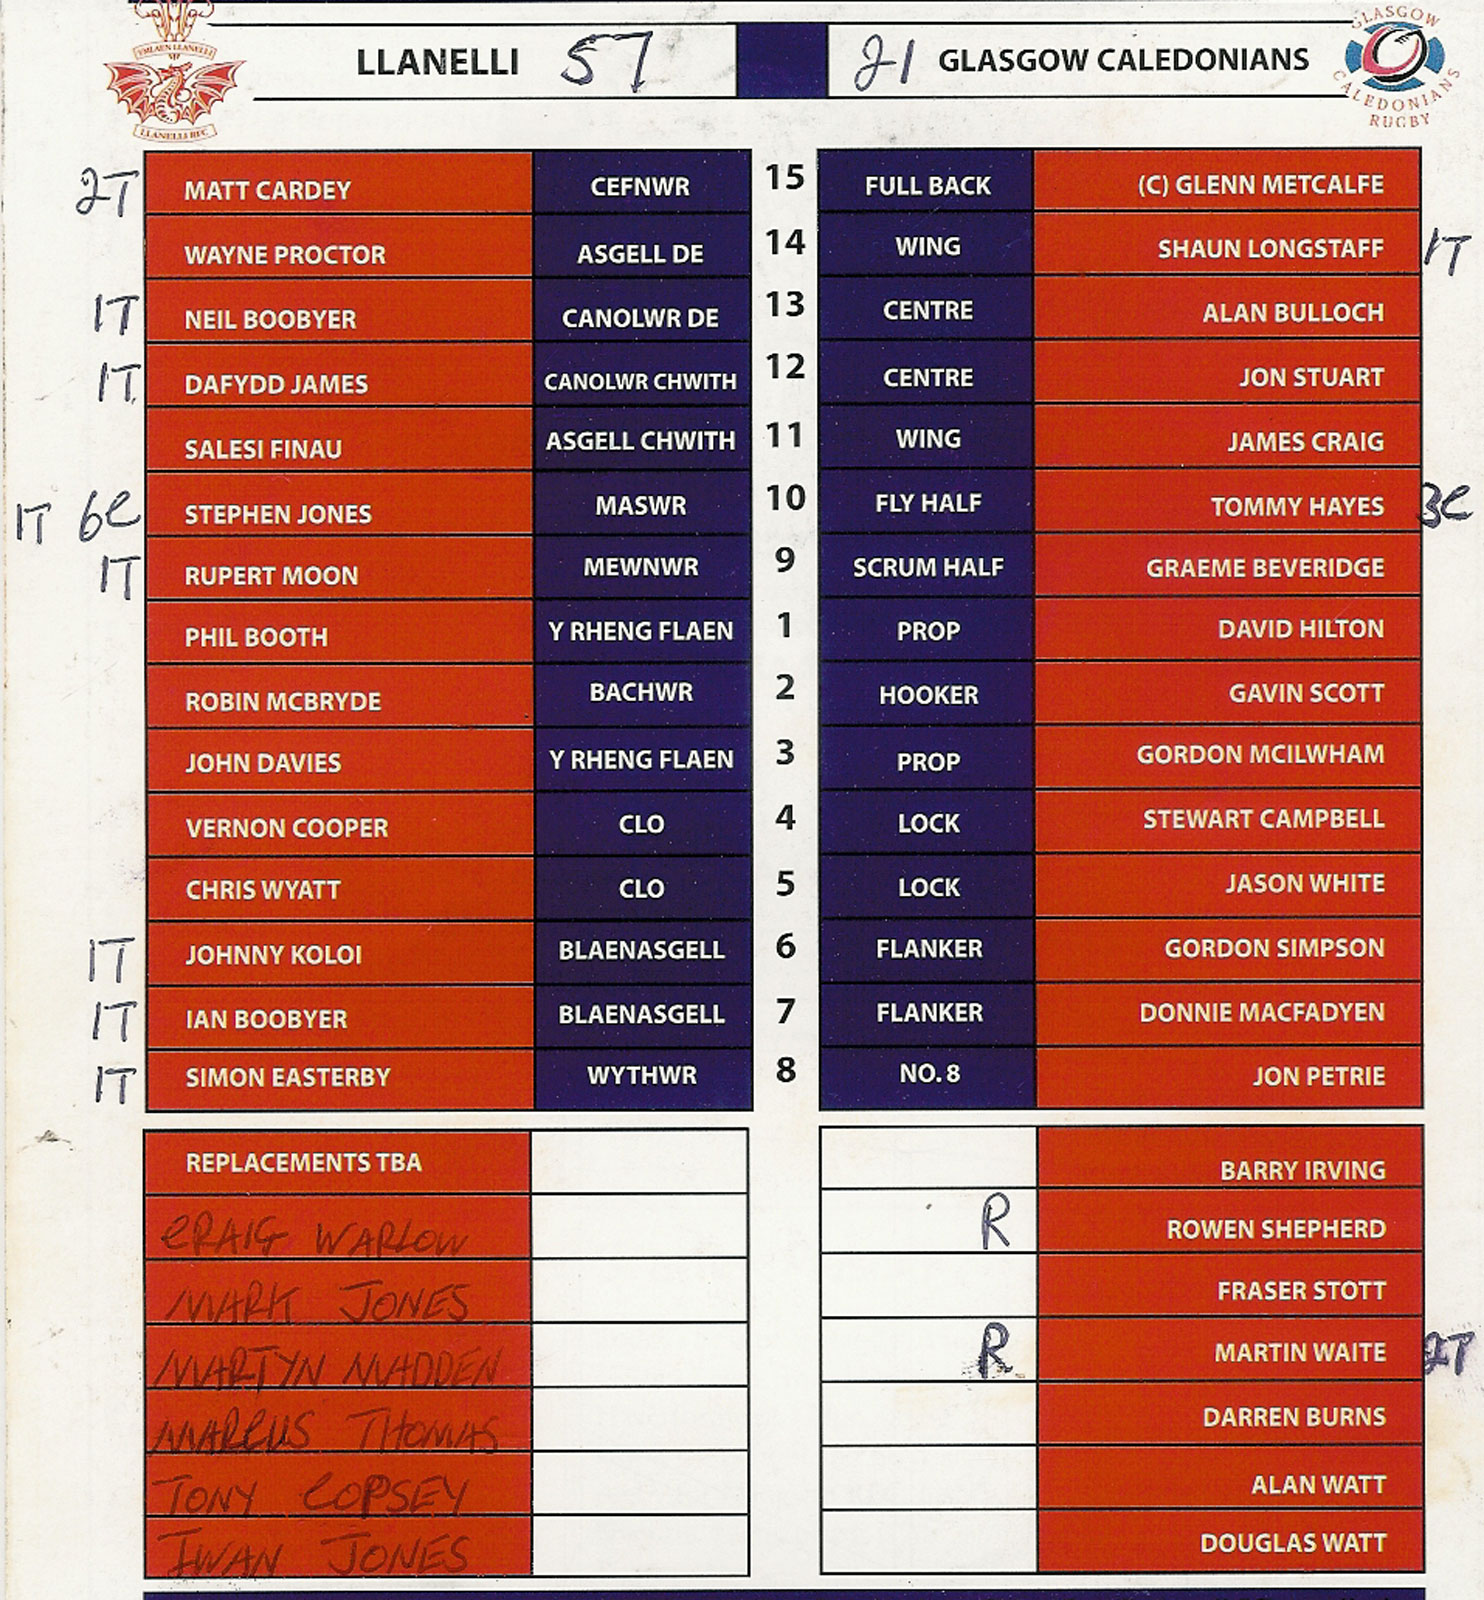 LLANELLI 57 21 GLASGOW CALEDONIANS
YMLAEN LLANELLI
LLANELLI RFC
GLASGOW
CALEDONIANS
RUGBY
2T MATT CARDEY CEFNWR 15 FULL BACK (C) GLENN METCALFE
WAYNE PROCTOR ASGELL DE 14 WING SHAUN LONGSTAFF 1T
1T NEIL BOOBYER CANOLWR DE 13 CENTRE ALAN BULLOCH
1T DAFYDD JAMES CANOLWR CHWITH 12 CENTRE JON STUART
SALESI FINAU ASGELL CHWITH 11 WING JAMES CRAIG
1T 6C STEPHEN JONES MASWR 10 FLY HALF TOMMY HAYES 3C
1T RUPERT MOON MEWNWR 9 SCRUM HALF GRAEME BEVERIDGE
PHIL BOOTH Y RHENG FLAEN 1 PROP DAVID HILTON
ROBIN MCBRYDE BACHWR 2 HOOKER GAVIN SCOTT
JOHN DAVIES Y RHENG FLAEN 3 PROP GORDON MCILWHAM
VERNON COOPER CLO 4 LOCK STEWART CAMPBELL
CHRIS WYATT CLO 5 LOCK JASON WHITE
1T JOHNNY KOLOI BLAENASGELL 6 FLANKER GORDON SIMPSON
1T IAN BOOBYER BLAENASGELL 7 FLANKER DONNIE MACFADYEN
1T SIMON EASTERBY WYTHWR 8 NO. 8 JON PETRIE
REPLACEMENTS TBA BARRY IRVING
CRAIG WARLOW R ROWEN SHEPHERD
MARK JONES FRASER STOTT
MARTYN MADDEN R MARTIN WAITE 2T
MARCUS THOMAS DARREN BURNS
TONY COPSEY ALAN WATT
IWAN JONES DOUGLAS WATT